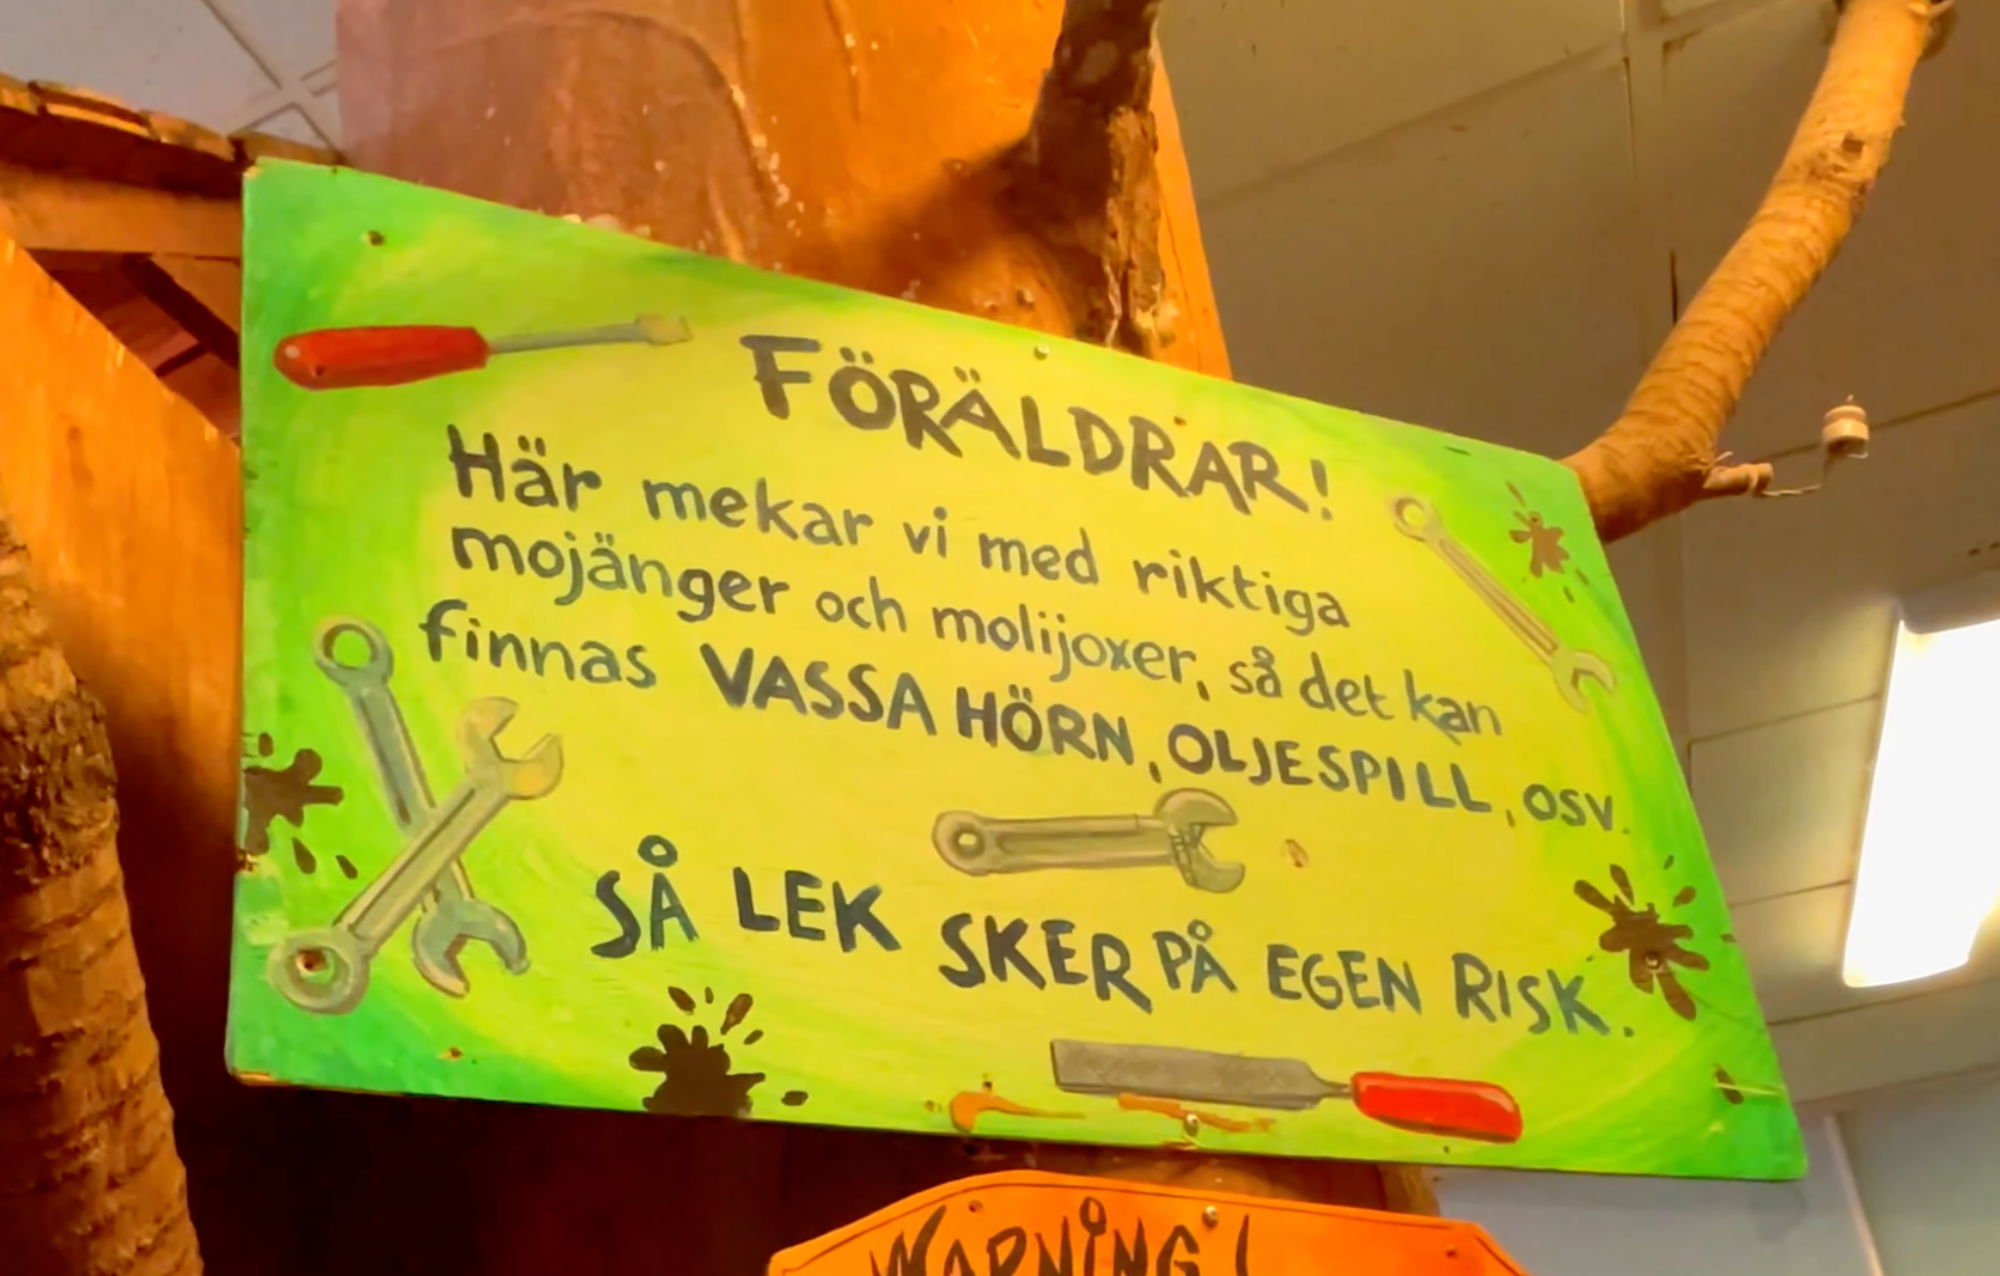 FÖRÄLDRAR!
Här mekar vi med riktiga
mojänger och molijoxer, så det kan
finnas VASSA HÖRN, OLJESPILL, osv.
SÅ LEK SKER PÅ EGEN RISK.
WARNING!